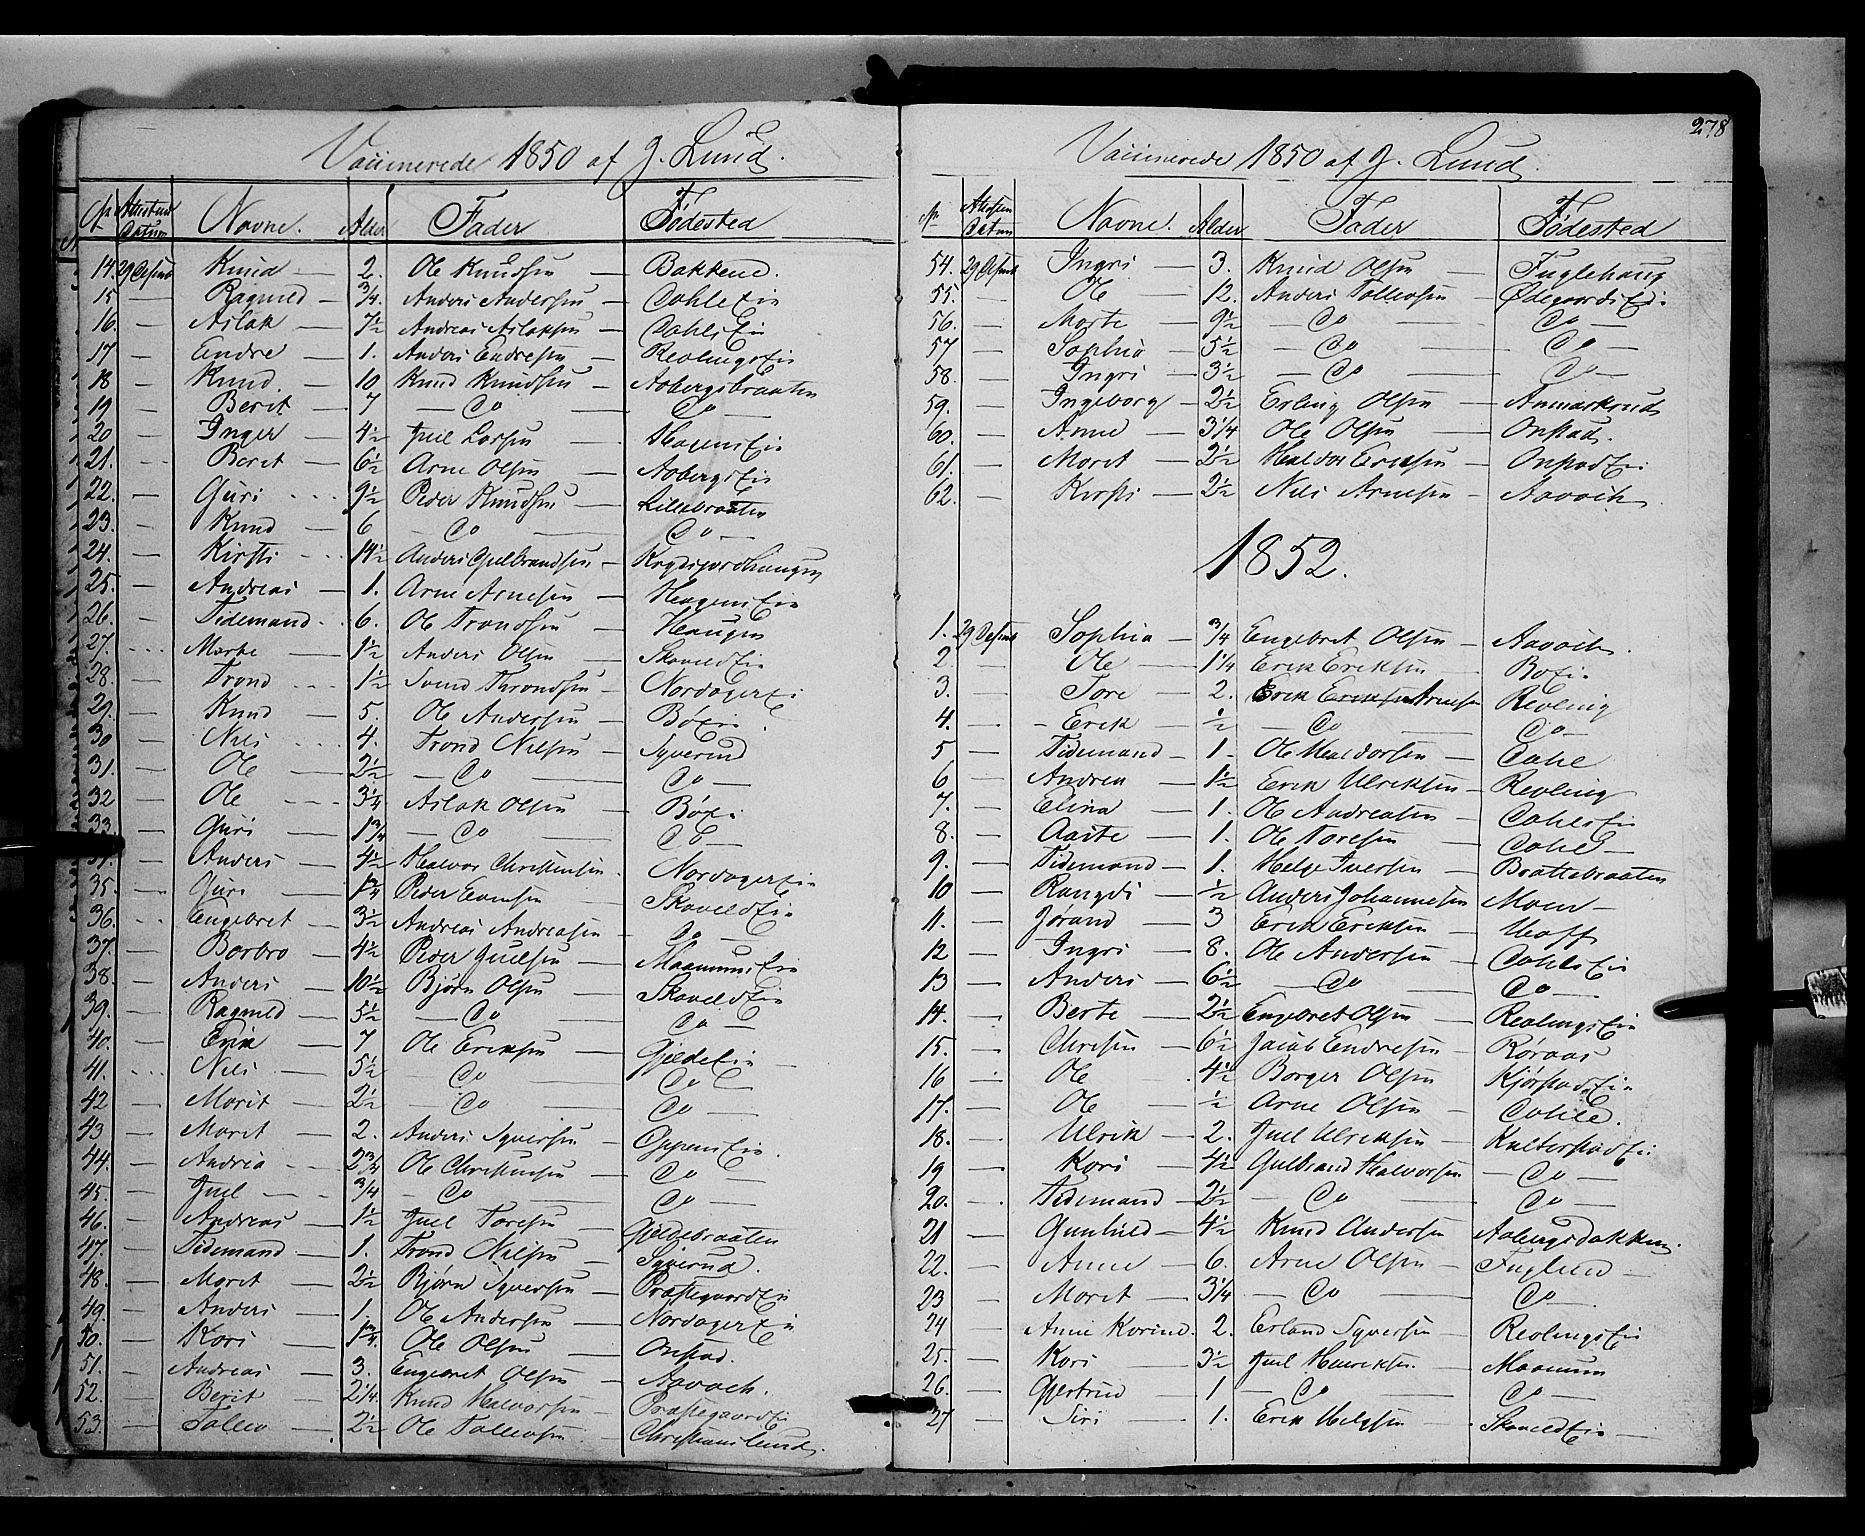 Vaccinerede 1850 af J. Lund.
No Attestens Datum Navne. Alder Fader Fødested
14. 29 Desemb Knud — 2. Ole Knudsen — Bakkene.
15 — Ragnild — 3/4. Anders Andersen — DahlsEie
16. — Aslak — 7½ Andreas Aslaksen — DahlsEie
17 — Endre — 1. Anders Endresen — RevlingsEie
18 — Knud. — 10 Knud Knudsen — Aabergsbraaten
19 — Berit — 7 — Do — Do —
20 — Inger — 4½ Juel Larsen — HagensEie
21. — Beret — 6½ Arne Olsen — AabergsEie
22. — Guri — 9½ Peder Knudsen — Lillebraaten
23. — Knud — 6 — Do — Do —
24. — Kirsti — 14½ Anders Gulbrandsen —
25. — Andreas — 1. Arne Arnesen — HaugensEie
26. — Tidemand — 6. Ole Trondsen — Haugen
27. — Marte — 1½ Anders Olsen — SkaveldEie
28. — Trond — 1½ Svend Throndsen — NordagerEie
29. — Knud — 5. Ole Andersen — BøEie
30 — Nils — 4. Trond Nilsen — Syverud
31. — Ole — 2½ — Do — Do —
32 — Ole — 3¼ Aslak Olsen — BøEie
33. — Guri — 1¾ — Do — Do —
34. — Anders — 4½ Halvor Christensen — NordagerEie
35. — Guri — 1¾ Peder Evensen — SkaveldEie
36. — Engebret — 3½ Andreas Andreasen — Do —
37. — Barbro — 4½ Peder Juelsen — MaanumsEie
38. — Anders — 10½ Bjørn Olsen — SkaveldEie
39. — Ragnild — 5½ — Do — Do —
40. — Erik — 7 Ole Eriksen — GjeldeEie —
41. — Nils — 5½ — Do — Do —
42 — Marit — 2½ — Do — Do —
43 — Marit — 2. Anders Syversen —
44. — Andrea — 2¾ Ole Christensen — Do —
45. — Juel — 3/4 — Do — Do —
46. — Andreas — 1½ Juel Toresen — Gjeldebraaten
47. — Tidemand — 1. Trond Nilsen — Syverud.
48. — Maret — 2½ Bjørn Syversen — PræstegaardEie
49. — Anders — 1. Ole Andersen — NordagerEie
50. — Kari — 1¾ Ole Olsen — Onstad.
51. — Andreas — 3. Engebret Olsen — Aavach.
52. — Berit — 2¼. Knud Halvorsen — PræstegaardEie
53. — Tollev — 2½ Ole Tollevsen — Christianslund.
278
Vaccinerede 1850 af J. Lund.
No Attesten Datum Navne. Alder Fader Fødested
54. 29 Desemb Ingri — 3. Knud Olsen — Fuglehaug
55. — Ole — 12. Anders Tollevsen — ØdegaardsEie
56. — Marte — 9½ — Do — Do —
57 — Sophia — 5½ — Do — Do —
58. — Ingri — 3½ — Do — Do —
59. — Ingeborg — 2½ Erling Olsen — Anmarkrud
60. — Anne — 3¼ Ole Olsen — Onstad.
61. — Maret — 2½ Halvor Eriksen — OnstadEie
62. — Kirsti — 2½ Nils Arnesen — Aavach
1852.
1. 29 Desemb Sophia — 3/4 Engebret Olsen — Aavach.
2. — Ole — 1¼ Erik Eriksen — BøEie
3. — Tore — 2. Erik Eriksen Arnesen Revling
4. — Erik — ½ — Do — Do —
5 — Tidemand — 1. Ole Halvorsen — Dahl
6 — Andrea — 1½ Erik Ulriksen — Revling
7. — Elina — 1. Ole Andreasen — DahlsEie
8. — Aaste — 1. Ole Toresen — Dahl —
9. — Tidemand — 1. Helge Iversen — Brattebraaten
10 — Rangdi — ½ Anders Johannesen Moen —
11. — Jorand — 3 Erik Eriksen — Hoff
12 — Ingri — 8. Ole Andersen — DahlsEie
13 — Anders — 6½ — Do — Do —
14. — Berte — 2½ Engebret Olsen — RevlingsEie
15. — Christen — 6½ Jacob Endresen — Røraas
16 — Ole — 4½ Borger Olsen KjørstadEie
17. — Ole — ½ Arne Olsen — Dahle.
18. — Ulrik — 2. Juel Ulriksen — KulterstadEie
19 — Kari — 4½ Gulbrand Halvorsen — Do —
20. — Tidemand — 2½ — Do — Do —
21 — Gunhild — 4½ Knud Andersen Aabergsbakken.
22. — Anne — 6. Arne Olsen — Fuglerud —
23 — Maret — 3¼ — Do — Do —
24 — Anne Karine. 2. Erland Syversen — RevlingsEie
25. — Kari — 3½ Juel Henriksen. — Maanum
26 — Gjertrud — 1 — Do — Do —
27 — Siri — 1. Erik Helgesen — SkaveldEie —